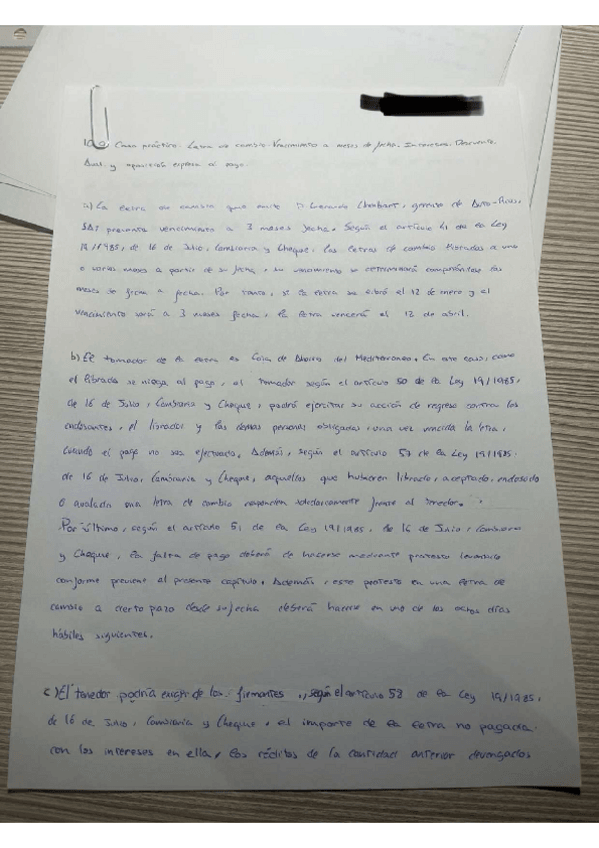 10.- Caso práctico. Letra de cambio. Vencimiento a meses de fecha. Intereses. Descuento.
Aval y oposición expresa al pago.
a) La letra de cambio que emite D. Gerardo gerente de
SAT presenta vencimiento a 3 meses fecha. Según el artículo 41 de la Ley
19/1985, de 16 de Julio, Cambiaria y Cheque, las letras de cambio libradas a uno
o varios meses a partir de su fecha, su vencimiento se determinará computándose los
meses de fecha a fecha. Por tanto, si la letra se libró el 12 de enero y el
vencimiento será a 3 meses fecha, la letra vencerá el 12 de abril.
b) El tomador de la letra es Caja de Ahorros del Mediterráneo. En este caso, como
el librado se niega al pago, el tomador según el artículo 50 de la Ley 19/1985,
de 16 de Julio, Cambiaria y Cheque, podrá ejercitar su acción de regreso contra los
endosantes, el librador y las demás personas obligadas, una vez vencida la letra,
cuando el pago no sea efectuado. Además, según el artículo 57 de la Ley 19/1985
de 16 de Julio, Cambiaria y Cheque, aquellos que hubieren librado, aceptado, endosado
o avalado una letra de cambio responden solidariamente frente al tenedor.
Por último, según el artículo 51 de la Ley 19/1985, de 16 de Julio, Cambiaria
y Cheque, la falta de pago deberá de hacerse mediante protesto levantado
conforme previene el presente capítulo. Además, este protesto en una letra de
cambio a cierto plazo desde su fecha deberá hacerse en uno de los ochos días
hábiles siguientes.
c) El tenedor podría exigir de los firmantes, según el artículo 58 de la Ley 19/1985,
de 16 de Julio, Cambiaria y Cheque, el importe de la letra no pagada
con los intereses en ella, los réditos de la cantidad anterior devengados